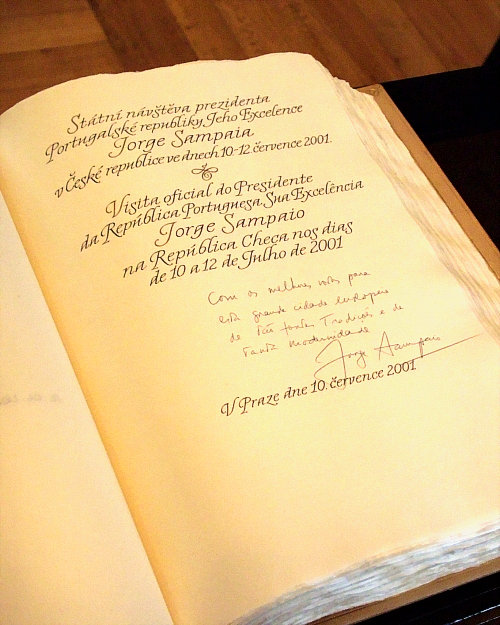 Státní návštěva prezidenta
Portugalské republiky, Jeho Excelence
Jorge Sampaia
v České republice ve dnech 10-12. července 2001.
Visita oficial do Presidente
da República Portuguesa, Sua Excelência
Jorge Sampaio
na República Checa nos dias
de 10 a 12 de Julho de 2001
Com os melhores votos para
esta grande cidade europeia
de tão fortes Tradições e de
Tanta modernidade
Jorge Sampaio
V Praze dne 10. července 2001